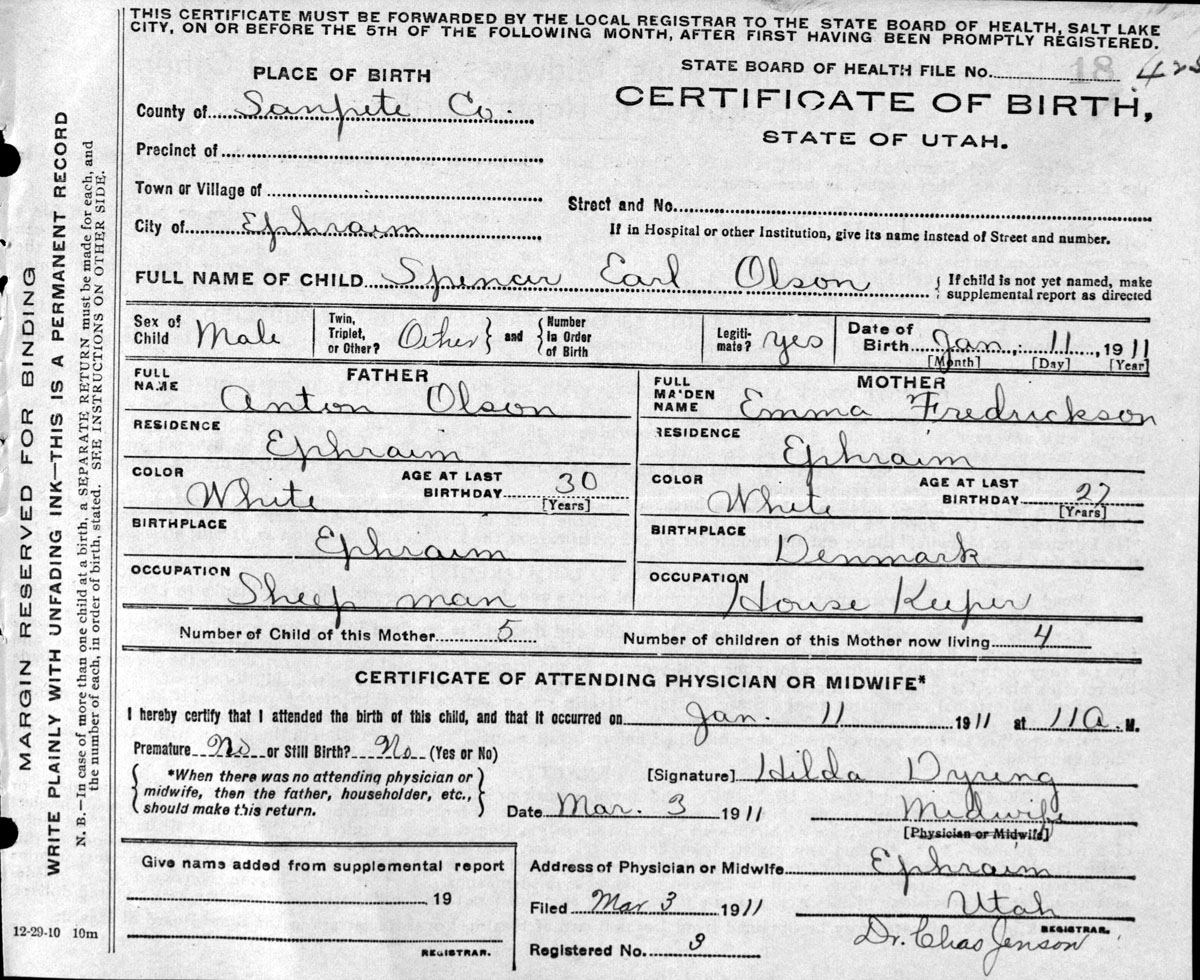 THIS CERTIFICATE MUST BE FORWARDED BY THE LOCAL REGISTRAR TO THE STATE BOARD OF HEALTH, SALT LAKE
CITY, ON OR BEFORE THE 5TH OF THE FOLLOWING MONTH, AFTER FIRST HAVING BEEN PROMPTLY REGISTERED.
MARGIN RESERVED FOR BINDING
WRITE PLAINLY WITH UNFADING INK—THIS IS A PERMANENT RECORD
N. B.—In case of more than one child at a birth, a SEPARATE RETURN must be made for each, and
the number of each, in order of birth, stated. SEE INSTRUCTIONS ON OTHER SIDE.
PLACE OF BIRTH
STATE BOARD OF HEALTH FILE No. 18
County of Sanpete Co.
CERTIFICATE OF BIRTH,
STATE OF UTAH.
Precinct of
Town or Village of
Street and No.
City of Ephraim
If in Hospital or other Institution, give its name instead of Street and number.
FULL NAME OF CHILD Spencer Earl Olson
If child is not yet named, make
supplemental report as directed
Sex of
Child Male
Twin,
Triplet,
or Other? Other
and
Number
in Order
of Birth
Legiti-
mate? yes
Date of
Birth Jan. 11, 1911
[Month] [Day] [Year]
FATHER
FULL
NAME Anton Olson
MOTHER
FULL
MAIDEN
NAME Emma Fredrickson
RESIDENCE Ephraim
RESIDENCE Ephraim
COLOR White
AGE AT LAST
BIRTHDAY 30
[Years]
COLOR White
AGE AT LAST
BIRTHDAY 27
[Years]
BIRTHPLACE Ephraim
BIRTHPLACE Denmark
OCCUPATION Sheep man
OCCUPATION House Keeper
Number of Child of this Mother 5
Number of children of this Mother now living 4
CERTIFICATE OF ATTENDING PHYSICIAN OR MIDWIFE*
I hereby certify that I attended the birth of this child, and that it occurred on Jan. 11 1911 at 11 A M.
Premature No or Still Birth? No (Yes or No)
*When there was no attending physician or
midwife, then the father, householder, etc.,
should make this return.
[Signature] Hilda Dyring
Date Mar. 3 1911
Midwife
[Physician or Midwife]
Give name added from supplemental report
19
REGISTRAR.
Address of Physician or Midwife Ephraim
Utah
Filed Mar 3 1911
REGISTRAR.
Dr. Chas Jenson
Registered No. 3
12-29-10 10m